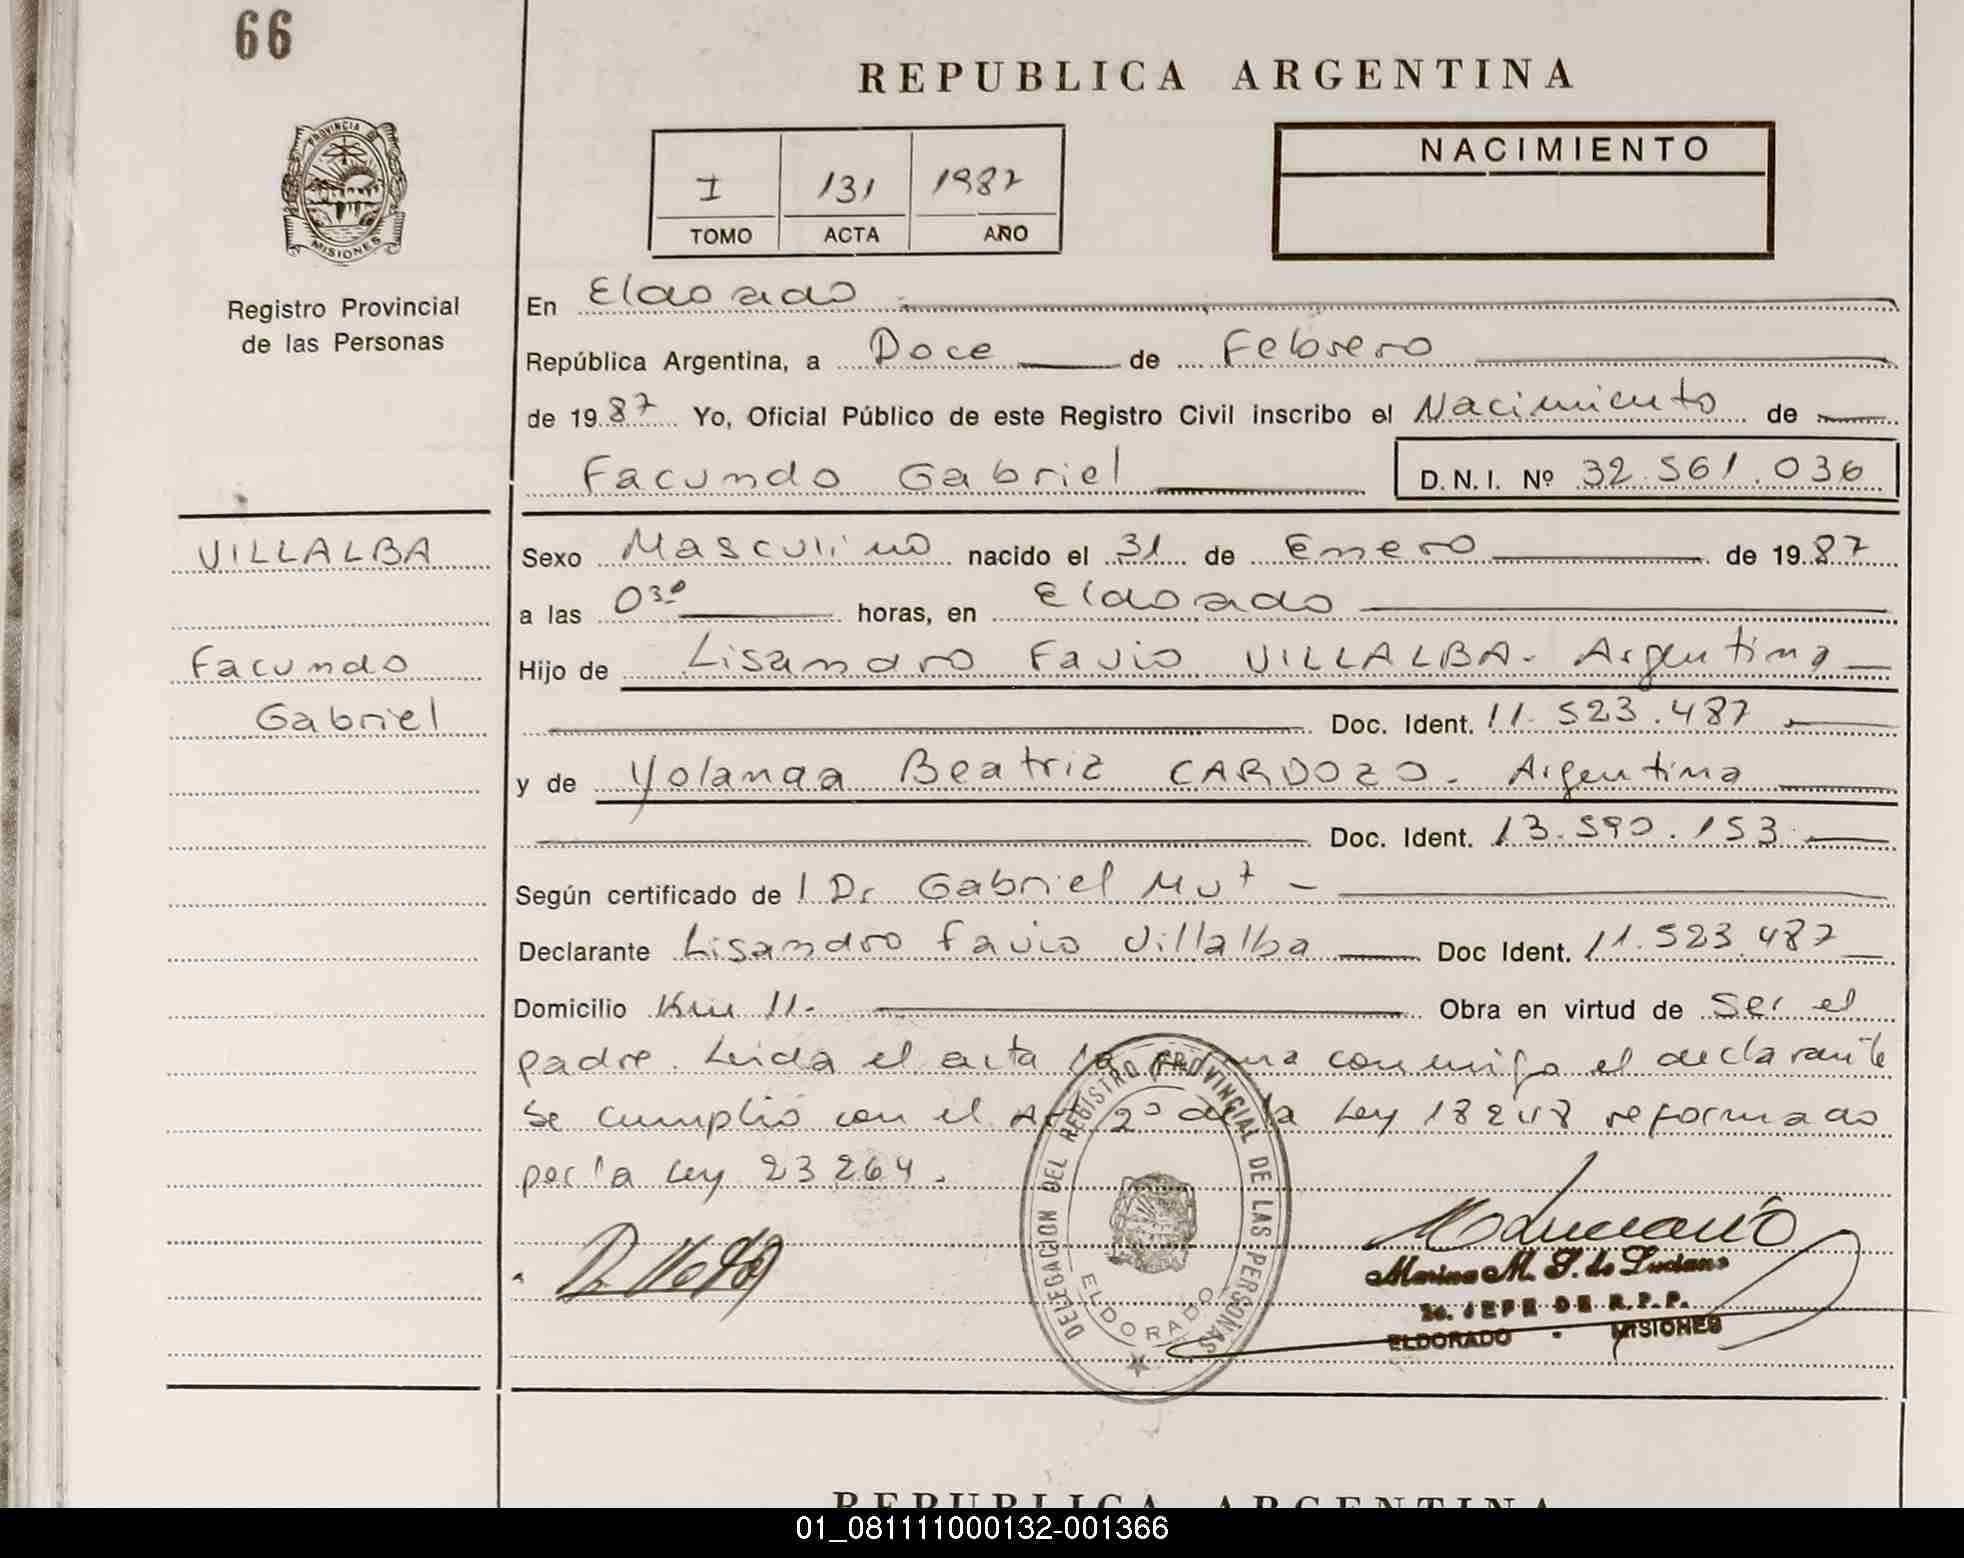 66
REPUBLICA ARGENTINA
PROVINCIA DE MISIONES
I 131 1987
TOMO ACTA AÑO
NACIMIENTO
Registro Provincial
de las Personas
En Eldorado
República Argentina, a Doce de Febrero
de 1987 Yo, Oficial Público de este Registro Civil inscribo el Nacimiento de
Facundo Gabriel D.N.I. Nº 32.561.036
VILLALBA
Facundo
Gabriel
Sexo Masculino nacido el 31 de Enero de 1987
a las 03º horas, en Eldorado
Hijo de Lisandro Favio VILLALBA - Argentina
Doc. Ident. 11.523.487
y de Yolanda Beatriz CARDOZO - Argentina
Doc. Ident. 13.590.153
Según certificado de l Dr Gabriel Mut -
Declarante Lisandro Favio Villalba Doc Ident. 11.523.487
Domicilio Km 11. Obra en virtud de Ser el
padre. Leida el acta la firma conmigo el declarante
Se cumplió con el Art 2º de la Ley 18248 reformado
por la Ley 23264.
DELEGACION DEL REGISTRO PROVINCIAL DE LAS PERSONAS
ELDORADO
Marina M. S. de Luciano
2o. JEFE DE R.P.P.
ELDORADO - MISIONES
REPUBLICA ARGENTINA
01_081111000132-001366